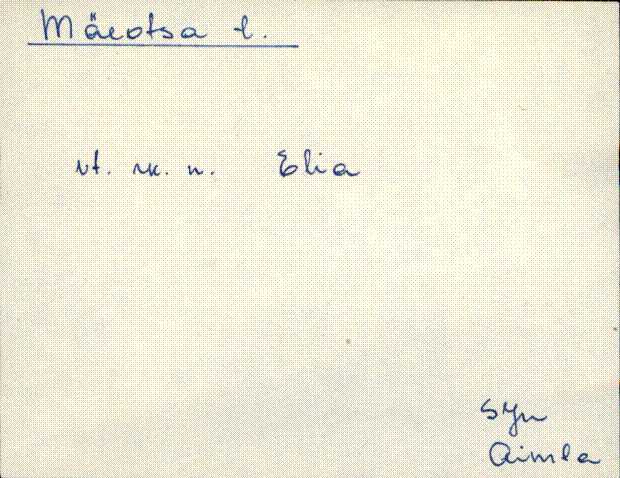 Mäeotsa t.
vt. rk. n. Elia
Syn
Aimla